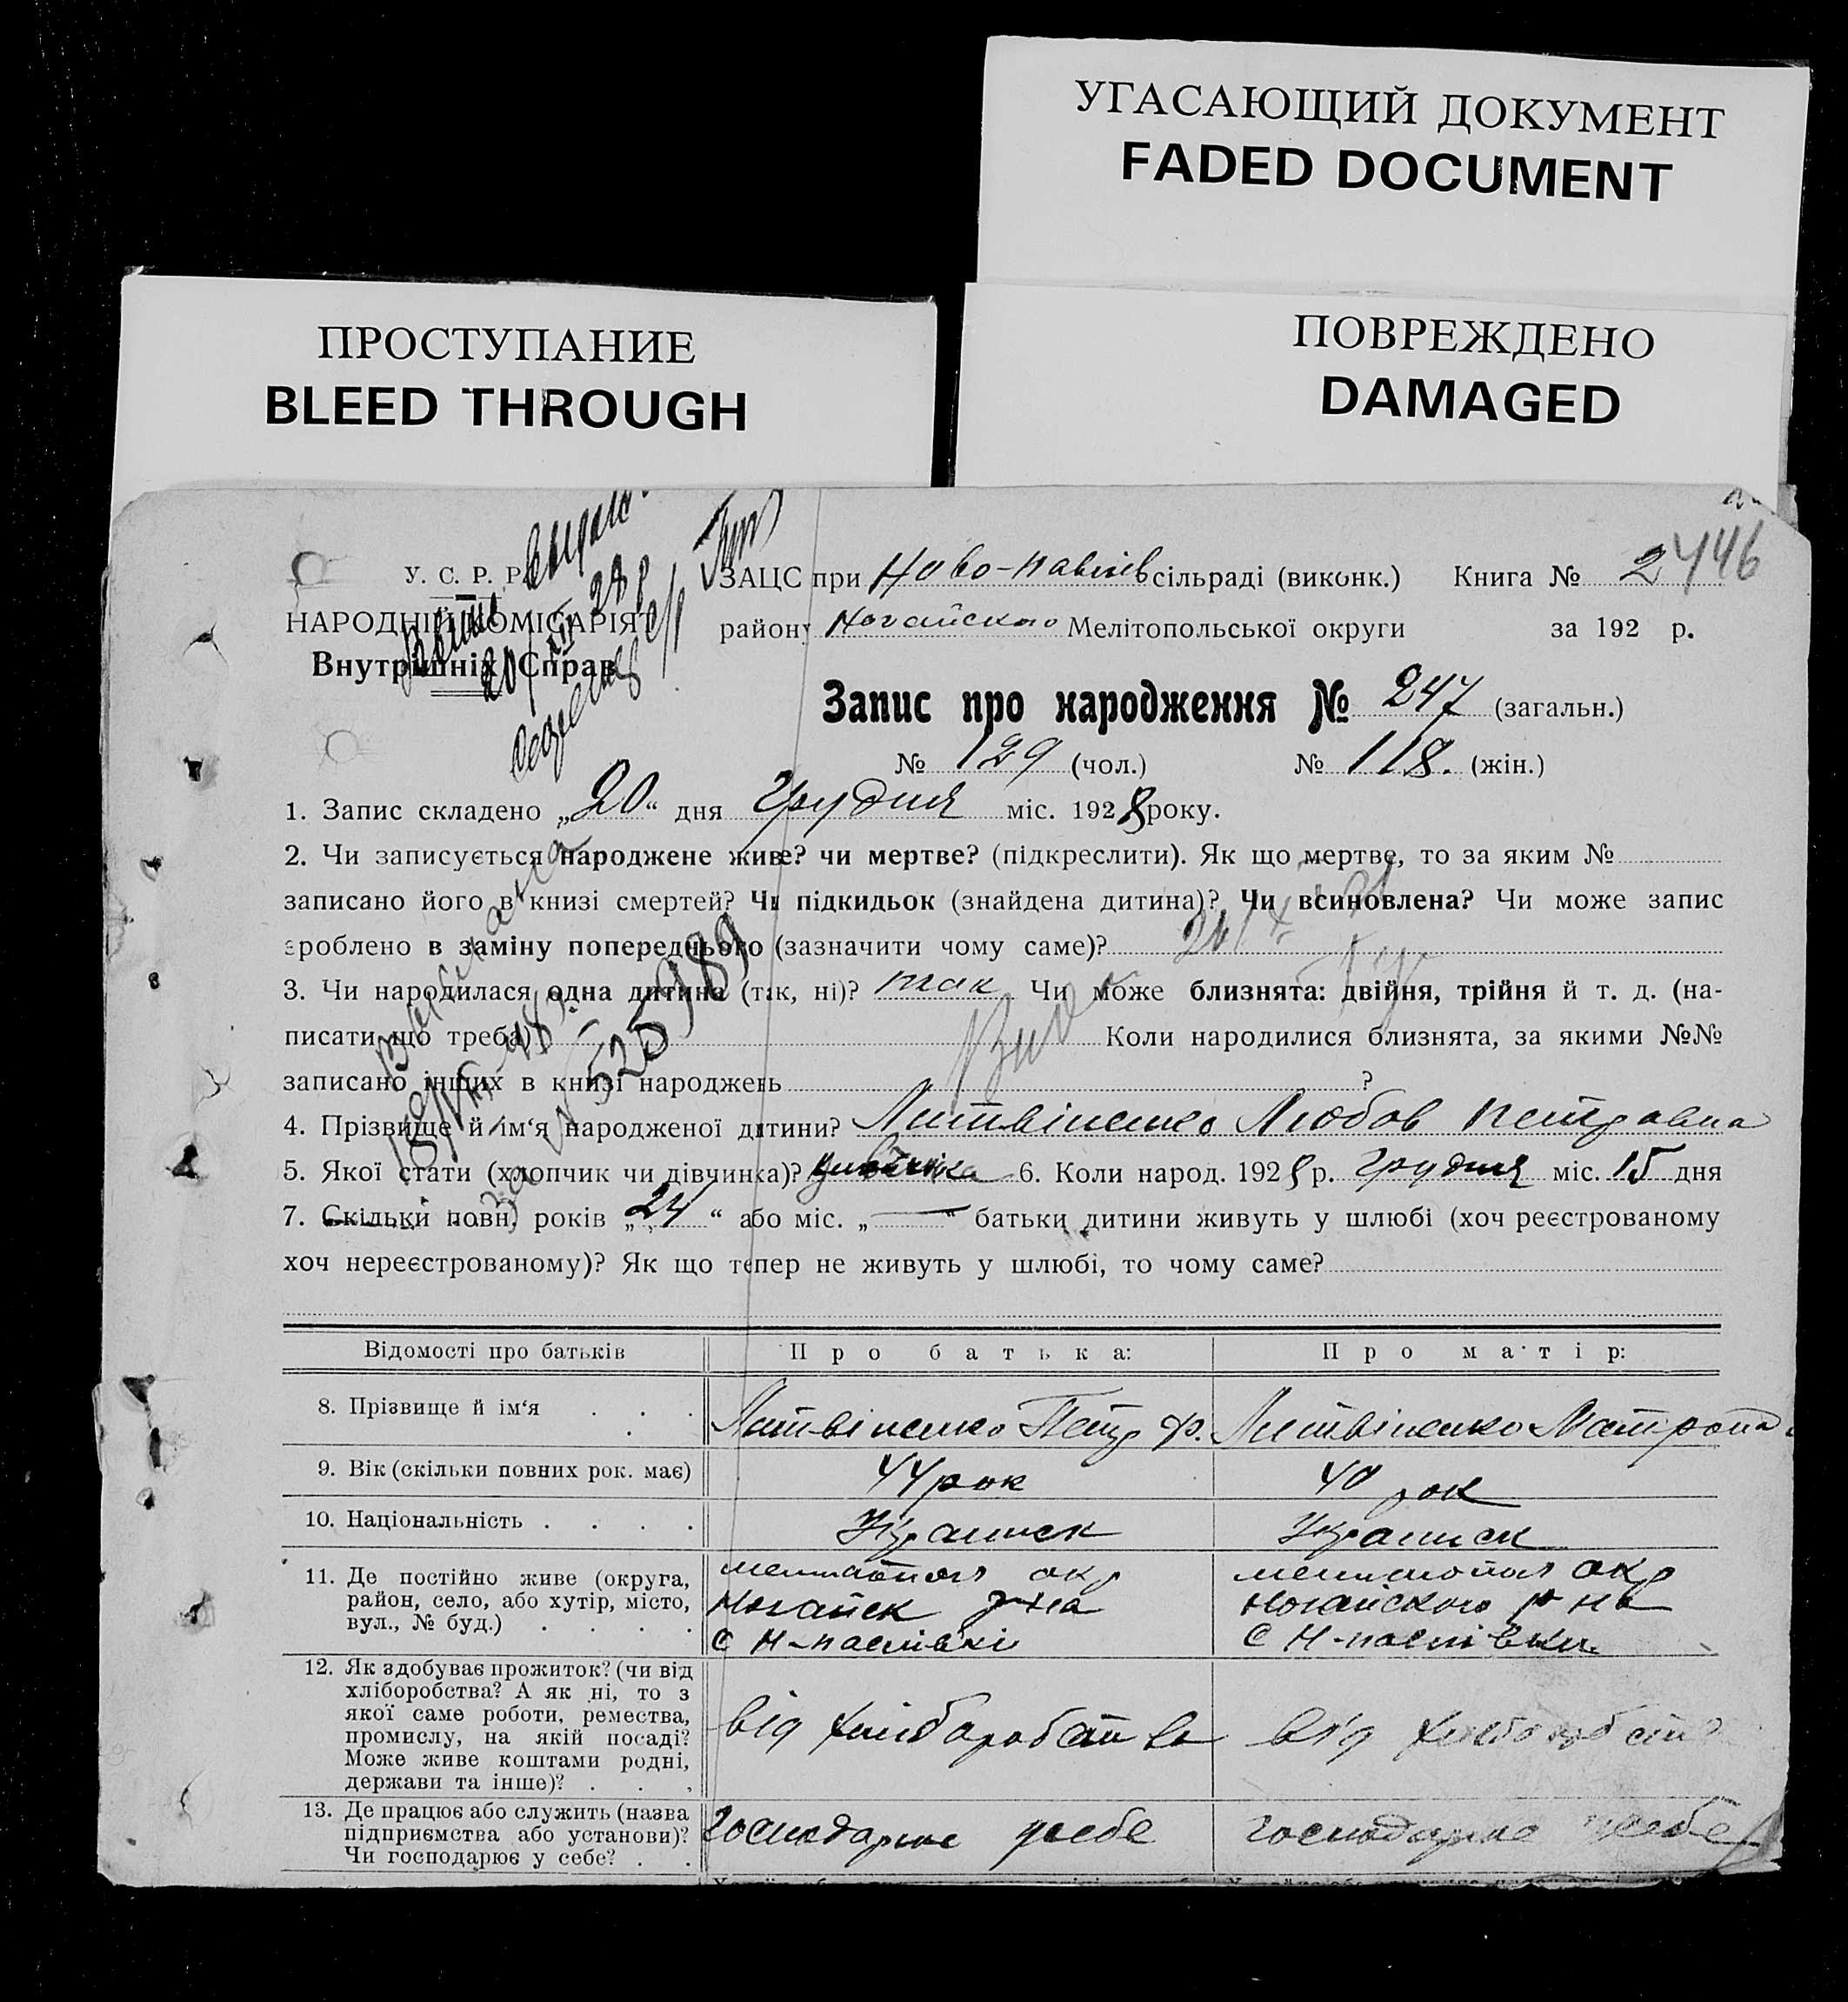 УГАСАЮЩИЙ ДОКУМЕНТ
FADED DOCUMENT
ПРОСТУПАНИЕ
BLEED THROUGH
ПОВРЕЖДЕНО
DAMAGED
446
У. С. Р. Р.
НАРОДНІЙ КОМІСАРІЯТ
Внутрішніх Справ
ЗАЦС при Ново-павлів сільраді (виконк.) Книга № 2
району Ногайского Мелітопольської округи за 192 р.
Запис про народження № 247 (загальн.)
№ 129 (чол.) № 118. (жін.)
1. Запис складено „20“ дня Грудня міс. 1928 року.
2. Чи записується народжене живе? чи мертве? (підкреслити). Як що мертве, то за яким №
записано його в книзі смертей? Чи підкидьок (знайдена дитина)? Чи всиновлена? Чи може запис
зроблено в заміну попереднього (зазначити чому саме)?
3. Чи народилася одна дитина (так, ні)? так Чи може близнята: двійня, трійня й т. д. (на-
писати що треба) Коли народилися близнята, за якими №№
записано інших в книзі народжень ?
525989
4. Прізвище й ім‘я народженої дитини? Литвіненко Любов Петровна
5. Якої стати (хлопчик чи дівчинка)? дивчінка 6. Коли народ. 1928 р. грудня міс. 15 дня
7. Скільки повн. років „24“ або міс. „—“ батьки дитини живуть у шлюбі (хоч реєстрованому
хоч нереєстрованому)? Як що тепер не живуть у шлюбі, то чому саме?
Відомості про батьків Про батька: Про матір:
8. Прізвище й ім‘я Литвіненко Петр Ф. Литвіненко Матрона
9. Вік (скільки повних рок. має) 44 рок 40 рок
10. Національність Украинск Украинск
11. Де постійно живе (округа, район, село, або хутір, місто, вул., № буд.)
окр окр
Ногайск р-на Ногайского р-на
12. Як здобуває прожиток? (чи від хліборобства? А як ні, то з якої саме роботи, ремества, промислу, на якій посаді? Може живе коштами родні, держави та інше)?
від хлібаробства від
13. Де працює або служить (назва підприємства або установи)? Чи господарює у себе?
господарює усебе господарює усебе